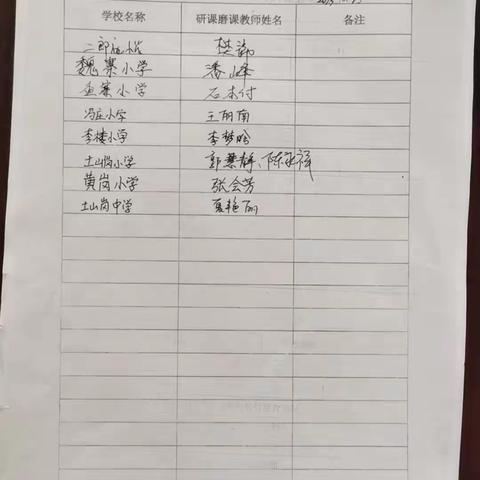 学校名称 研课磨课教师姓名 备注
二郎庙小学 樊
魏寨小学 潘峰
鱼寨小学 石本付
冯庄小学 王丽南
李楼小学 李梦晗
土山岗小学 郭慧静、陈永祥
黄岗小学 张会芳
土山岗中学 夏艳丽